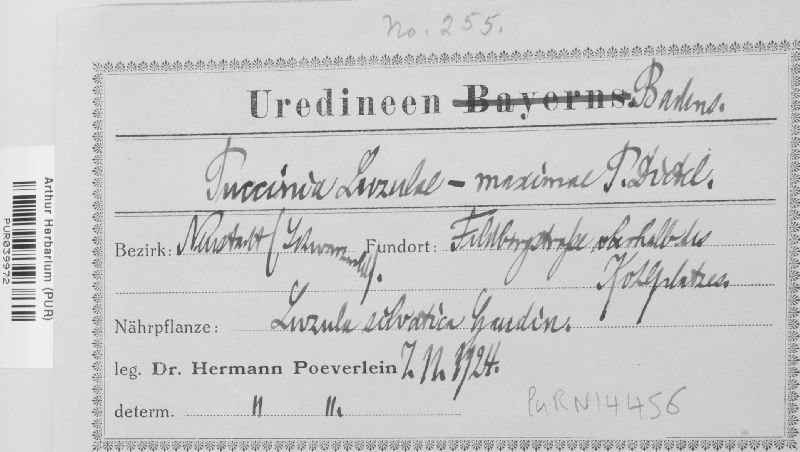 No. 255.
Uredineen Bayerns. Badens.
Puccinia Luzulae - maximae P. Dietel.
Bezirk: Neustadt (Schwarzwald). Fundort: Feldbergstraße oberhalb des
Holzplatzes.
Nährpflanze: Luzula silvatica Gaudin.
leg. Dr. Hermann Poeverlein 1924.
determ. " ".
PURN14456
Arthur Herbarium (PUR)
PUR039972